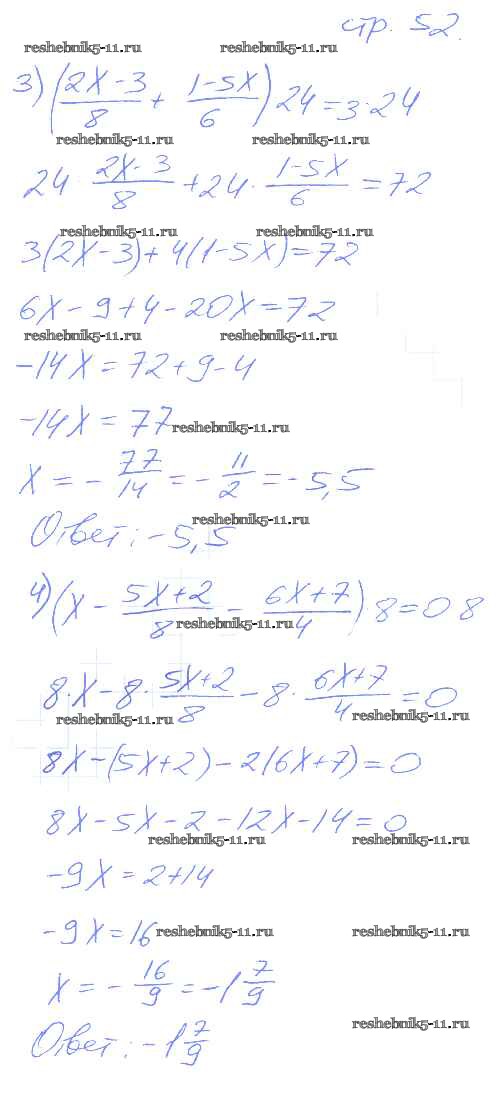 стр. 52.
reshebnik5-11.ru reshebnik5-11.ru
3) ((2x-3)/8 + (1-5x)/6) 24 = 3·24
reshebnik5-11.ru reshebnik5-11.ru
24 · (2x-3)/8 + 24 · (1-5x)/6 = 72
reshebnik5-11.ru reshebnik5-11.ru
3(2x-3)+4(1-5x)=72
6x-9+4-20x=72
reshebnik5-11.ru reshebnik5-11.ru
-14x=72+9-4
-14x=77
reshebnik5-11.ru
x = - 77/14 = - 11/2 = -5,5
reshebnik5-11.ru
Ответ: -5,5
4) (x - (5x+2)/8 - (6x+7)/4) 8 = 0 8
reshebnik5-11.ru
8·x - 8 · (5x+2)/8 - 8 · (6x+7)/4 = 0
reshebnik5-11.ru reshebnik5-11.ru
8x-(5x+2)-2(6x+7)=0
8x-5x-2-12x-14=0
reshebnik5-11.ru reshebnik5-11.ru
-9x=2+14
-9x=16
reshebnik5-11.ru reshebnik5-11.ru
x = - 16/9 = -1 7/9
reshebnik5-11.ru
Ответ: -1 7/9